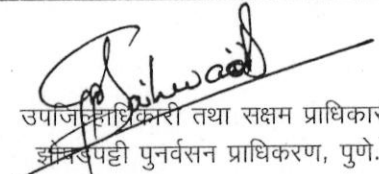 उपजिल्हाधिकारी तथा सक्षम प्राधिकार
झोपडपट्टी पुनर्वसन प्राधिकरण, पुणे.